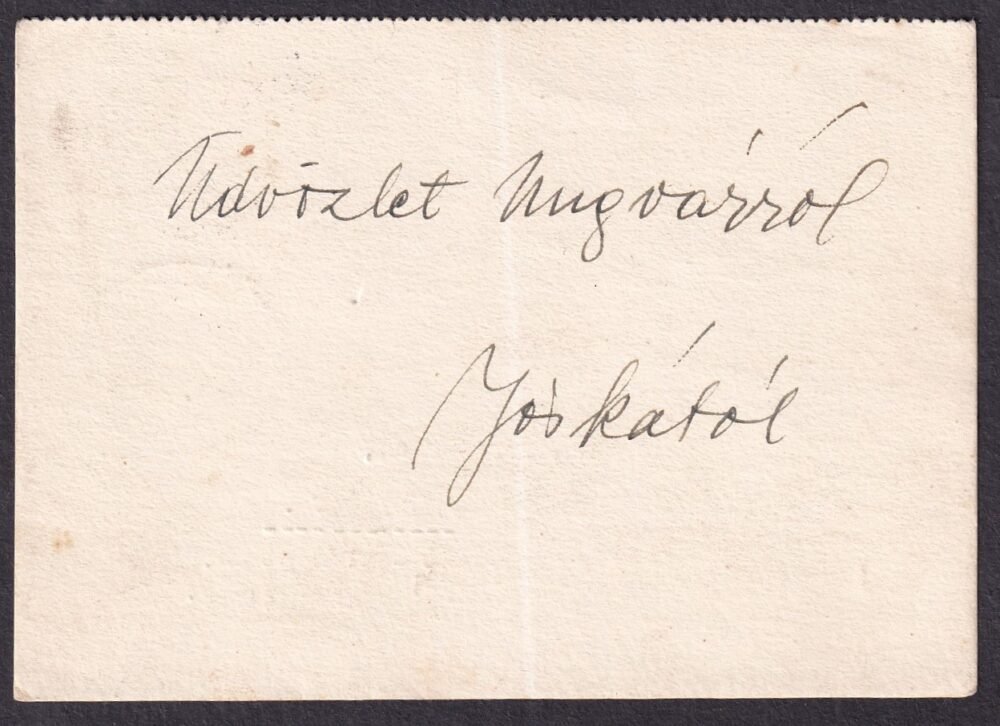 Üdvözlet Ungvárról
Jóskától